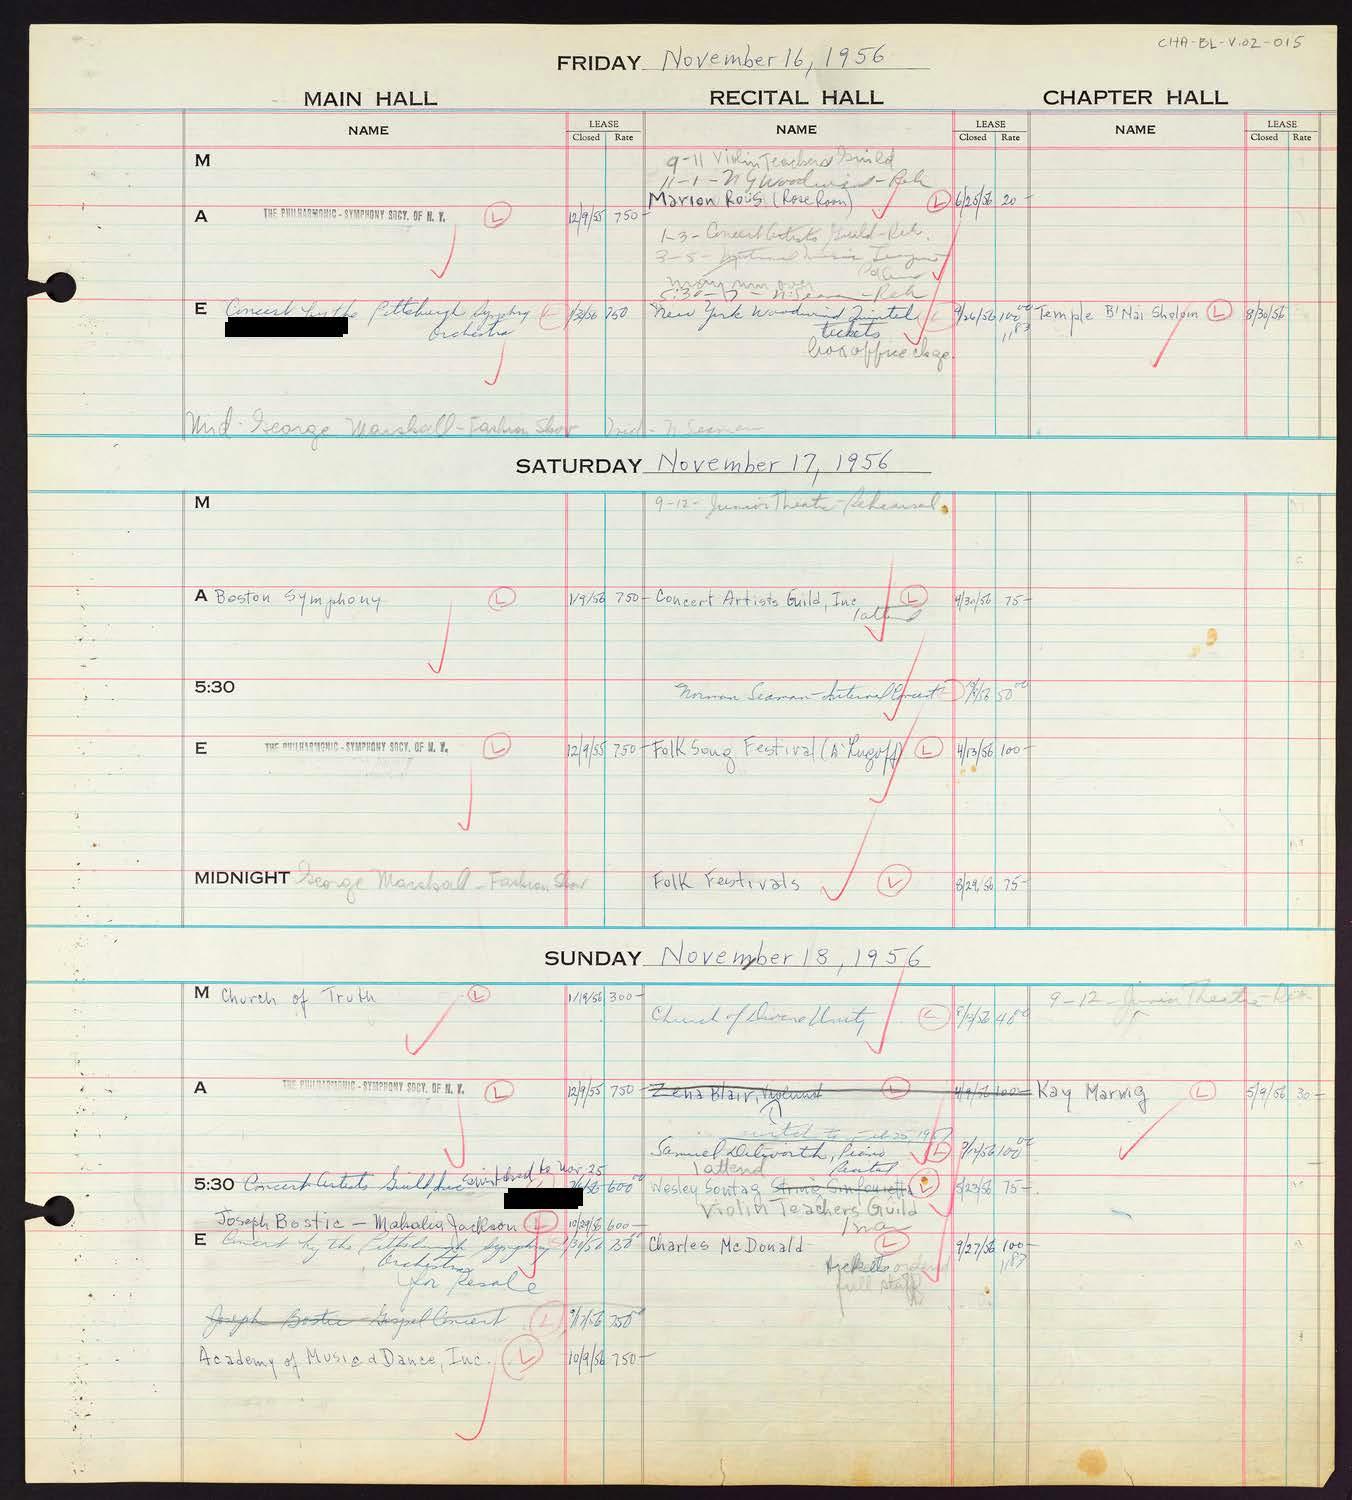 CHA-BL-V.02-015
FRIDAY November 16, 1956
MAIN HALL RECITAL HALL CHAPTER HALL
NAME LEASE Closed Rate NAME LEASE Closed Rate NAME LEASE Closed Rate
M
9-11 Violin Teachers Guild
11-1- NY Woodwind - Reh
Marion Rous (Rose Room) L 6/25/56 20-
A THE PHILHARMONIC-SYMPHONY SOCY. OF N. Y. L 12/9/55 750-
1-3- Concert Artists Guild-Reh.
3-5-
5:30-7- N. Seaman-Reh
E Concert by the Pittsburgh Symphony L 1/31/56 750 New York Woodwind Quintet L 9/26/56 100 Temple B'Nai Sholom L 8/30/56
Orchestra tickets 1183
box office chge.
Mid- George Marshall-Fashion Show Mid- N. Seaman
SATURDAY November 17, 1956
M 9-12- Junior Theatre-Rehearsal
A Boston Symphony L 1/9/56 750- Concert Artists Guild, Inc L 4/30/56 75-
1 attend
5:30 Norman Seaman-Interval Concert 50
E THE PHILHARMONIC-SYMPHONY SOCY. OF N. Y. L 12/9/55 750- Folk Song Festival L 4/13/56 100-
MIDNIGHT George Marshall-Fashion Show Folk Festivals L 8/29/56 75-
SUNDAY November 18, 1956
M Church of Truth L 1/19/56 300- 9-12- Junior Theatre-Reh
Church of Divine Unity L 40
A THE PHILHARMONIC-SYMPHONY SOCY. OF N. Y. L 12/9/55 750- Zena Blair, Violinist L 4/9/56 100- Kay Marwig L 5/9/56 30-
switched to Feb 25, 1957
Samuel Dilworth, Piano L 100
1 attend Recital
switched to Nov. 25
5:30 Concert Artists Guild, Inc 600 Wesley Sontag String Sinfonietta L 5/23/56 75-
Violin Teachers Guild
1 man
Joseph Bostic - Mahalia Jackson L 10/29/56 600-
E Concert by the Pittsburgh Symphony 1/31/56 750 Charles McDonald L 9/27/56 100-
Orchestra tickets ordered 1183
for Resale full staff
Joseph Bostic Gospel Concert L 9/17/56 750
Academy of Music & Dance, Inc. L 10/9/56 750-